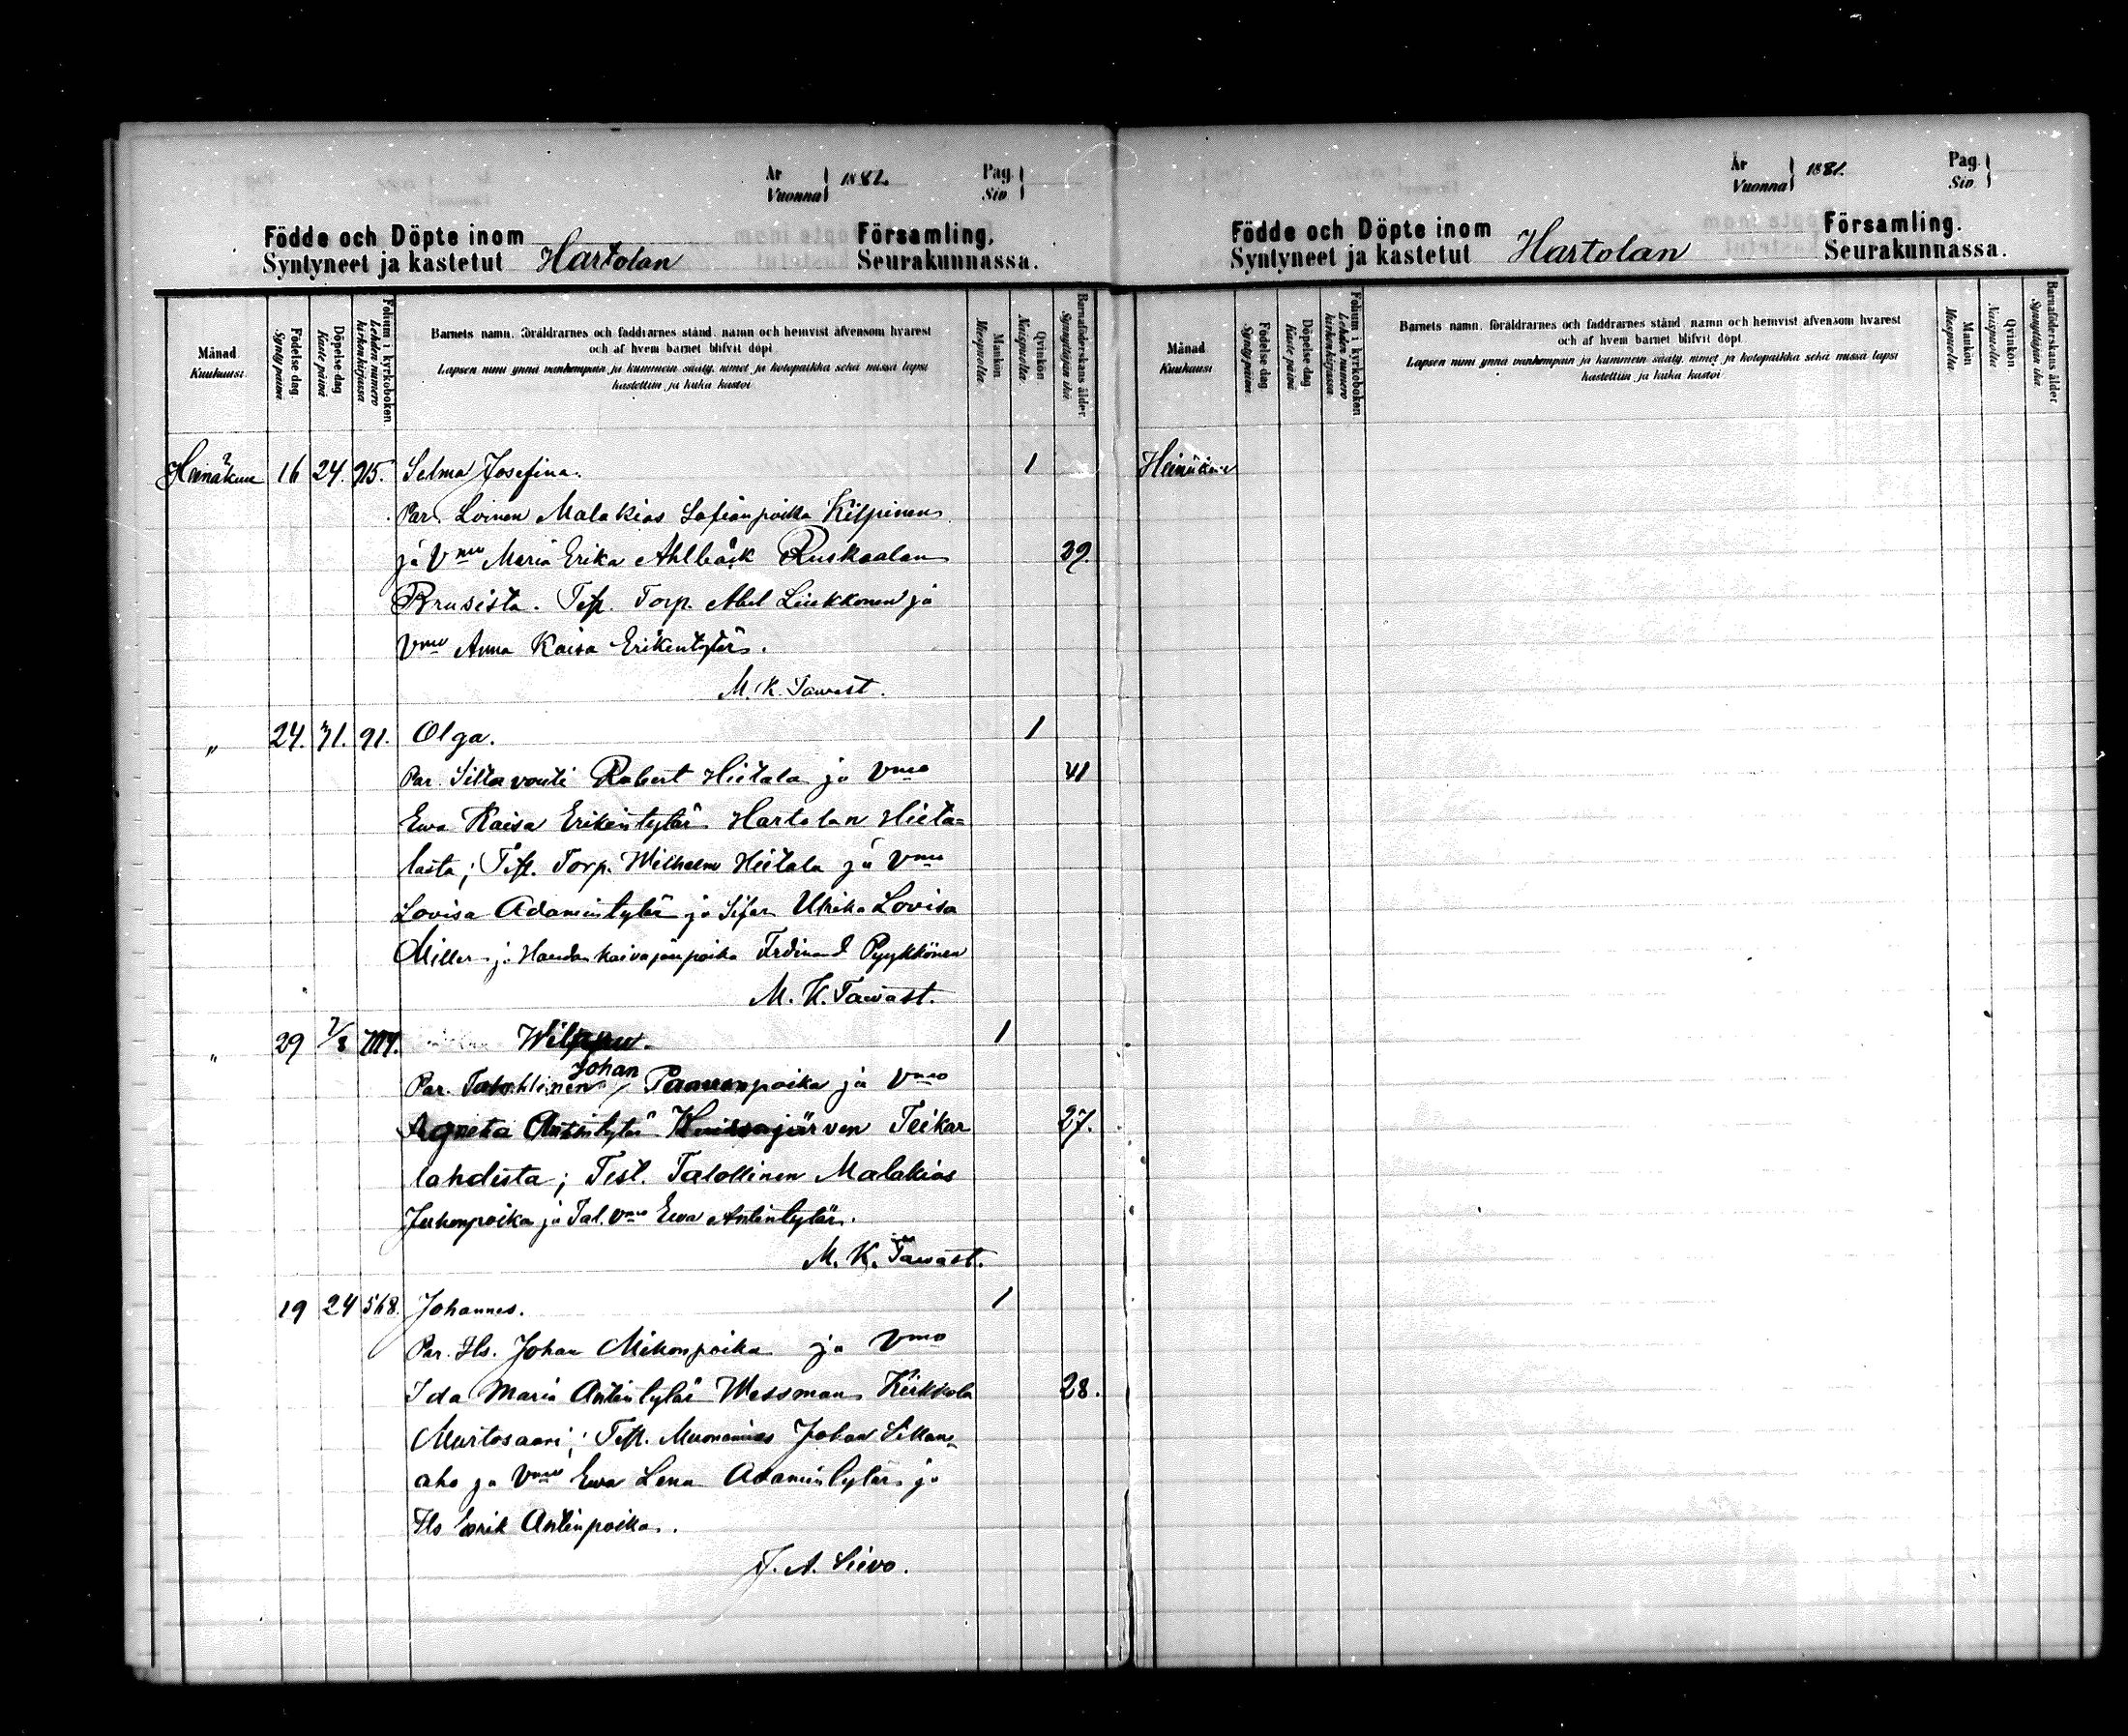 År
Vuonna } 1881.
Pag.
Siv. }
Födde och Döpte inom
Syntyneet ja kastetut Hartolan
Församling.
Seurakunnassa.
Månad.
Kuukausi.
Födelse dag.
Syntypäivä.
Döpelse dag
Kaste päivä
Folium i kyrkoboken.
Lehden numero kirkonkirjassa.
Barnets namn, föräldrarnes och faddrarnes stånd, namn och hemvist äfvensom hvarest
och af hvem barnet blifvit döpt.
Lapsen nimi ynnä vanhempain ja kummein sääty, nimet ja kotopaikka sekä missä lapsi
kastettiin ja kuka kastoi.
Mankön
Miespuolia.
Qvinkön
Naispuolia.
Barnaföderskans ålder.
Synnyttäjän ikä.
Heinäkuu 16 24. 915. Selma Josefina. 1
Par. Loinen Malakias Kilpinen
ja Vmo Maria Erika Ahlbäck Ruskealan 39.
Prusista. Test. Torp. Abel Liukkonen ja
Vmo Anna Kaisa Erikintytär.
M. K. Tawast.
„ 24. 31. 91. Olga. 1
Par. Siltavouti Robert Hietala ja Vmo 41
Ewa Kaisa Erikintytär Hartolan Hieta=
lasta; Test. Torp. Wilhelm Hietala ja Vmo
Lovisa Adamintytär ja Ulrika Lovisa
Miller ja Haudankaivajanpoika Ferdinand Pyykkönen
M. K. Tawast.
„ 29 7/8 Wilppu. 1
Johan
Par. Talollinen Paavonpoika ja Vmo
Agneta Antintytär Teikar 27.
lahdesta; Test. Talollinen Malakias
Juhonpoika ja Tal. Vmo Ewa Antintytär.
M. K. Tawast.
19 24 568. Johannes. 1
Par. Its. Johan Mikonpoika ja Vmo
Ida Maria Antintytär Wessman Kirkkola 28.
Murtosaari; Test. Muonamies Johan Sillan=
aho ja Vmo Ewa Lena Adamintytär ja
Its Erik Antinpoika.
J. A. Sievo.
År
Vuonna } 1881.
Pag.
Siv. }
Födde och Döpte inom
Syntyneet ja kastetut Hartolan
Församling.
Seurakunnassa.
Månad
Kuukausi
Födelse dag
Syntypäivä.
Döpelse dag
Kaste päivä
Folium i kyrkoboken
Lehden numero kirkonkirjassa.
Barnets namn, föräldrarnes och faddrarnes stånd, namn och hemvist äfvensom hvarest
och af hvem barnet blifvit döpt.
Lapsen nimi ynnä vanhempain ja kummein sääty, nimet ja kotopaikka sekä missä lapsi
kastettiin ja kuka kastoi
Mankön
Miespuolia.
Qvinkön.
Naispuolia.
Barnaföderskans ålder
Synnyttäjän ikä.
Heinäkuu